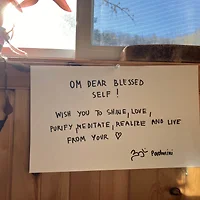 OM DEAR BLESSED
SELF !
WISH YOU TO SHINE, LOVE,
PURIFY, MEDITATE, REALIZE AND LIVE
FROM YOUR ♡